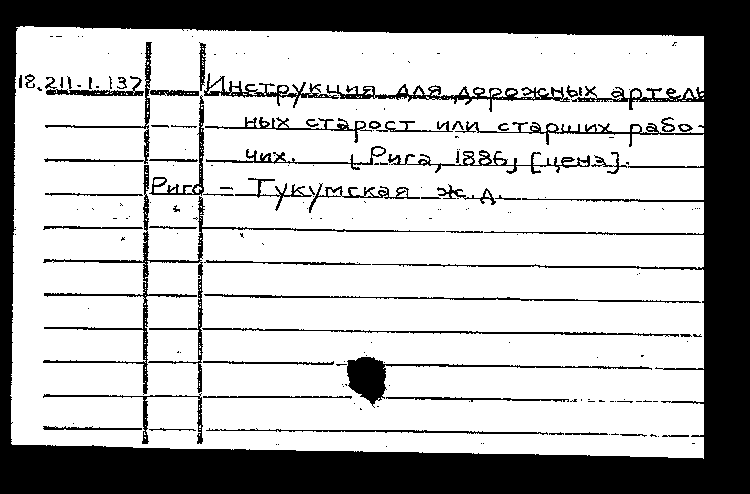 18.211.1.137 Инструкция для дорожных артель
ных старост или старших рабо-
чих. [Рига, 1886, [цена].
Риго - Тукумская ж.д.